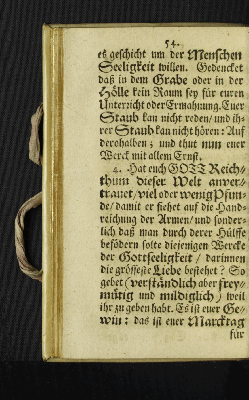 54.
es geschicht um der Menschen
Seeligkeit willen. Gedencket
daß in dem Grabe oder in der
Hölle kein Raum sey für euren
Unterricht oder Ermahnung. Euer
Staub kan nicht reden/ und ih-
rer Staub kan nicht hören: Auf
derohalben; und thut nun euer
Werck mit allem Ernst.
4. Hat euch GOTT Reich-
thum dieser Welt anver-
trauet/ viel oder wenig Pfun-
de/ damit er siehet auf die Hand-
reichung der Armen/ und sonder-
lich daß man durch derer Hülffe
befödern solte diejenigen Wercke
der Gottseeligkeit/ darinnen
die grösseste Liebe bestehet? So
gebet (verständlich aber frey-
mütig und mildiglich) weil
ihr zu geben habt. Es ist euer Ge-
win: das ist euer Marcktag
für